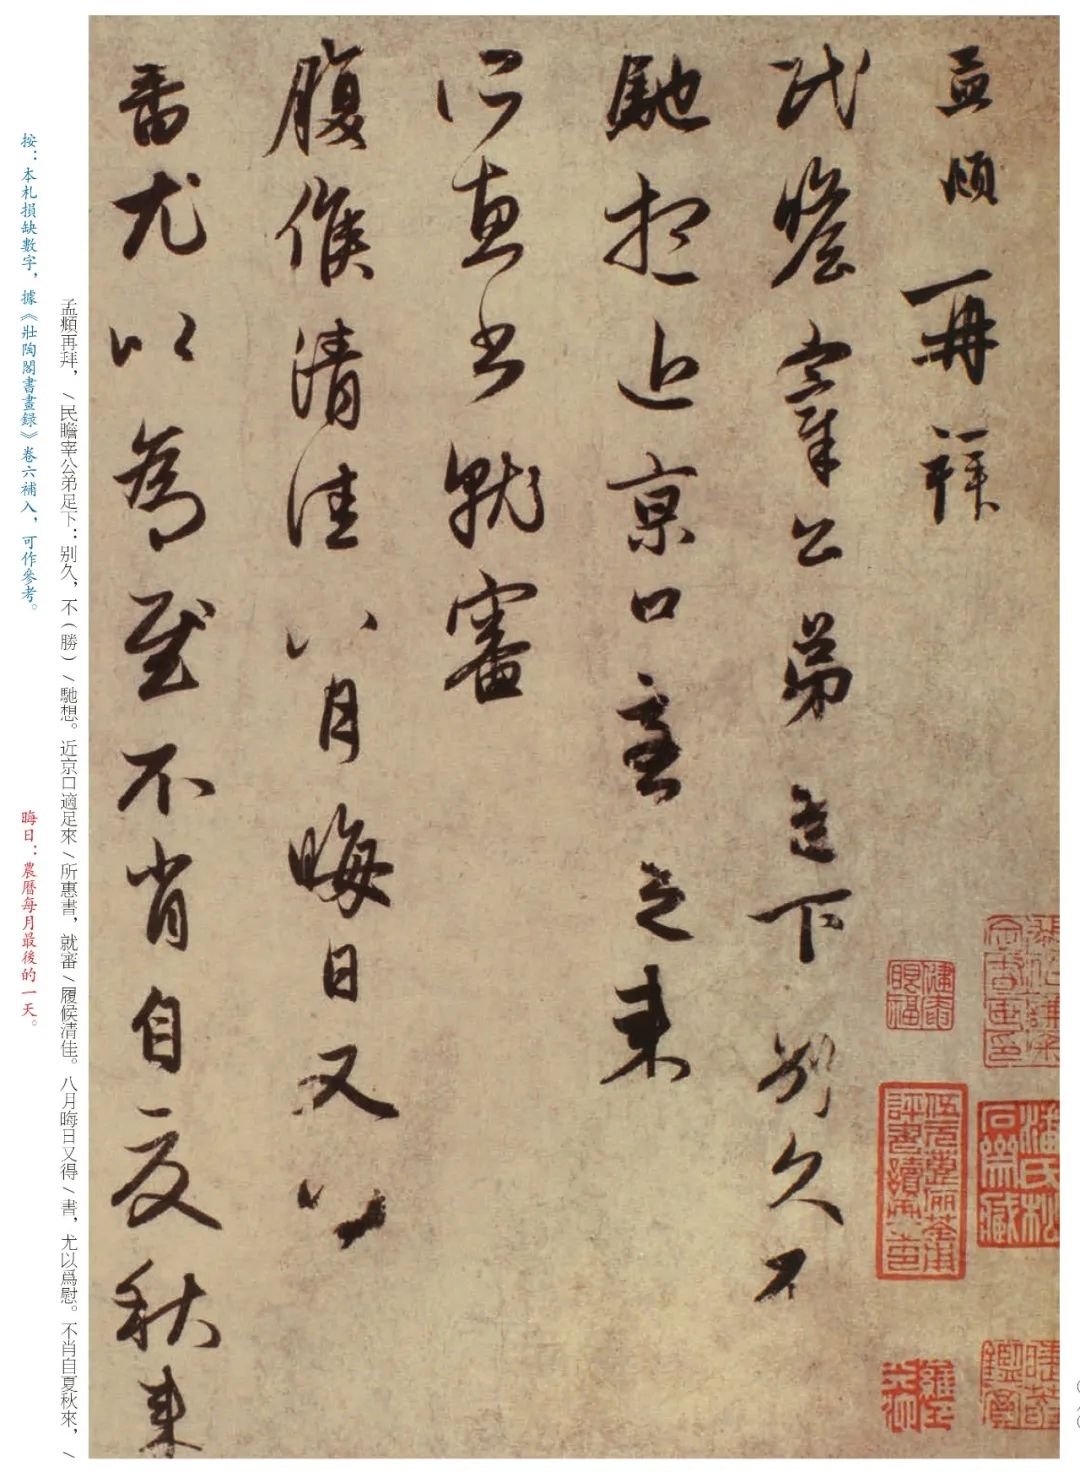 孟頫再拜
民瞻宰公弟足下别久不
馳想近京口適足来
所惠书就審
履候清佳八月晦日又
書尤以為慰不肖自夏秋来
孟頫再拜，/民瞻宰公弟足下：别久，不（勝）/馳想。近京口適足來/所惠書，就審/履候清佳。八月晦日又得/書，尤以爲慰。不肖自夏秋來，/
按：本札損缺數字，據《壯陶閣書畫録》卷六補入，可作參考。
晦日：農曆每月最後的一天。